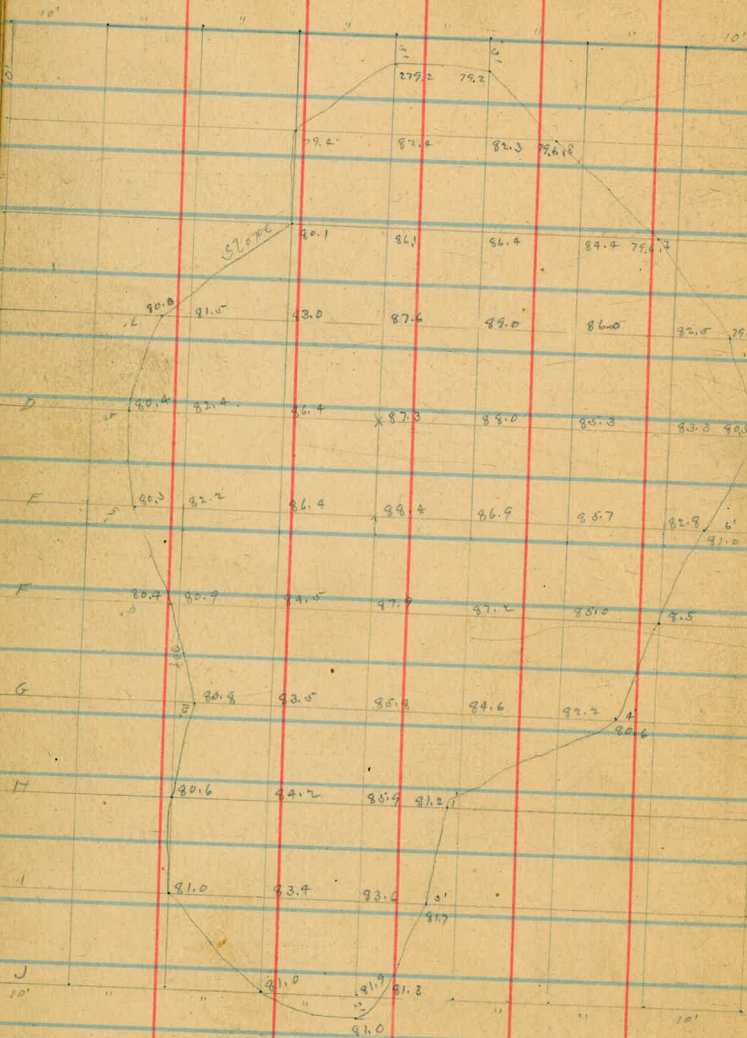 10' " " " " 10'
10'
3' 3'
279.2 79.2
79.2 82.4 82.3 79.6
80.1 86.1 86.4 84.4 79.6
Stone
80.8 81.5 83.0 87.6 89.0 86.0 82.5 79
D 80.4 82.4 86.4 X 87.3 88.0 85.3 83.3 80.
F 80.3 82.2 86.4 88.8 86.9 85.7 82.8 6'
81.0
F 80.4 80.9 84.5 87.9 87.2 85.0 8.5
G 80.8 83.5 85.8 84.6 82.2 4'
80.6
H 80.6 84.2 85.9 81.2
I 81.0 83.4 83.6 3'
81.7
J 81.0 81.9 81.3
10' " " " " " 10'
81.0